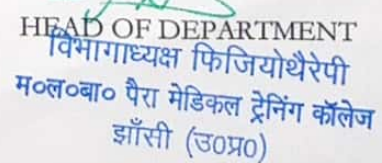 HEAD OF DEPARTMENT
विभागाध्यक्ष फिजियोथैरेपी
म०ल०बा० पैरा मेडिकल ट्रेनिंग कॉलेज
झाँसी (उ०प्र०)